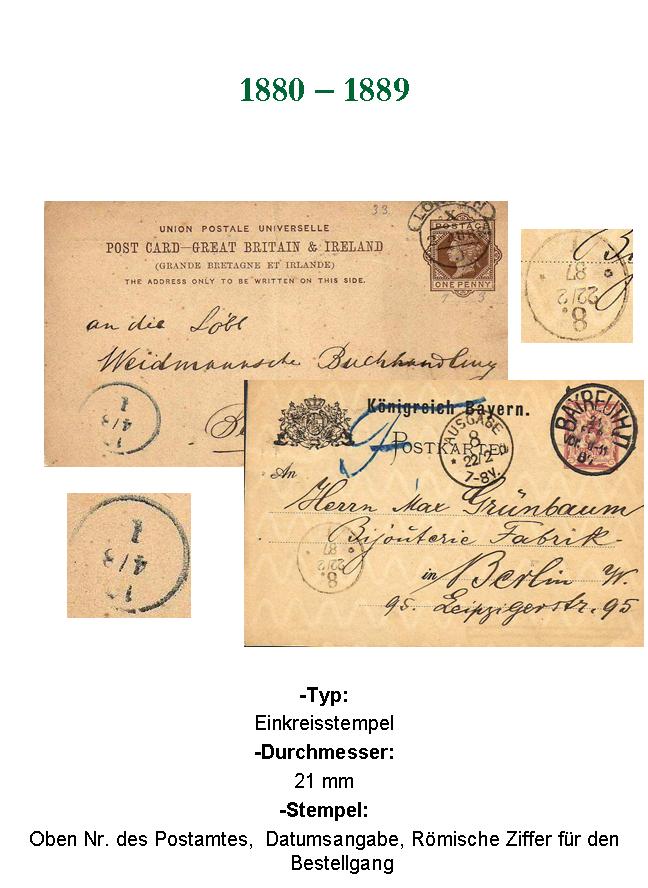 1880 – 1889
33
LONDON
X
UNION POSTALE UNIVERSELLE
POST CARD—GREAT BRITAIN & IRELAND
(GRANDE BRETAGNE ET IRLANDE)
THE ADDRESS ONLY TO BE WRITTEN ON THIS SIDE.
POSTAGE
ONE PENNY
an die Löbl
Weidmannsche Buchhandlung
4/3
1
8.
22/2
87
Königreich Bayern.
POSTKARTE
AUSGABE
8
22/2
7-8V.
BAYREUTH
An
Herrn Max Grünbaum
Bijouterie Fabrik
in Berlin W.
95. Leipzigerstr. 95
8.
22/2
87
4/3
1
-Typ:
Einkreisstempel
-Durchmesser:
21 mm
-Stempel:
Oben Nr. des Postamtes, Datumsangabe, Römische Ziffer für den
Bestellgang